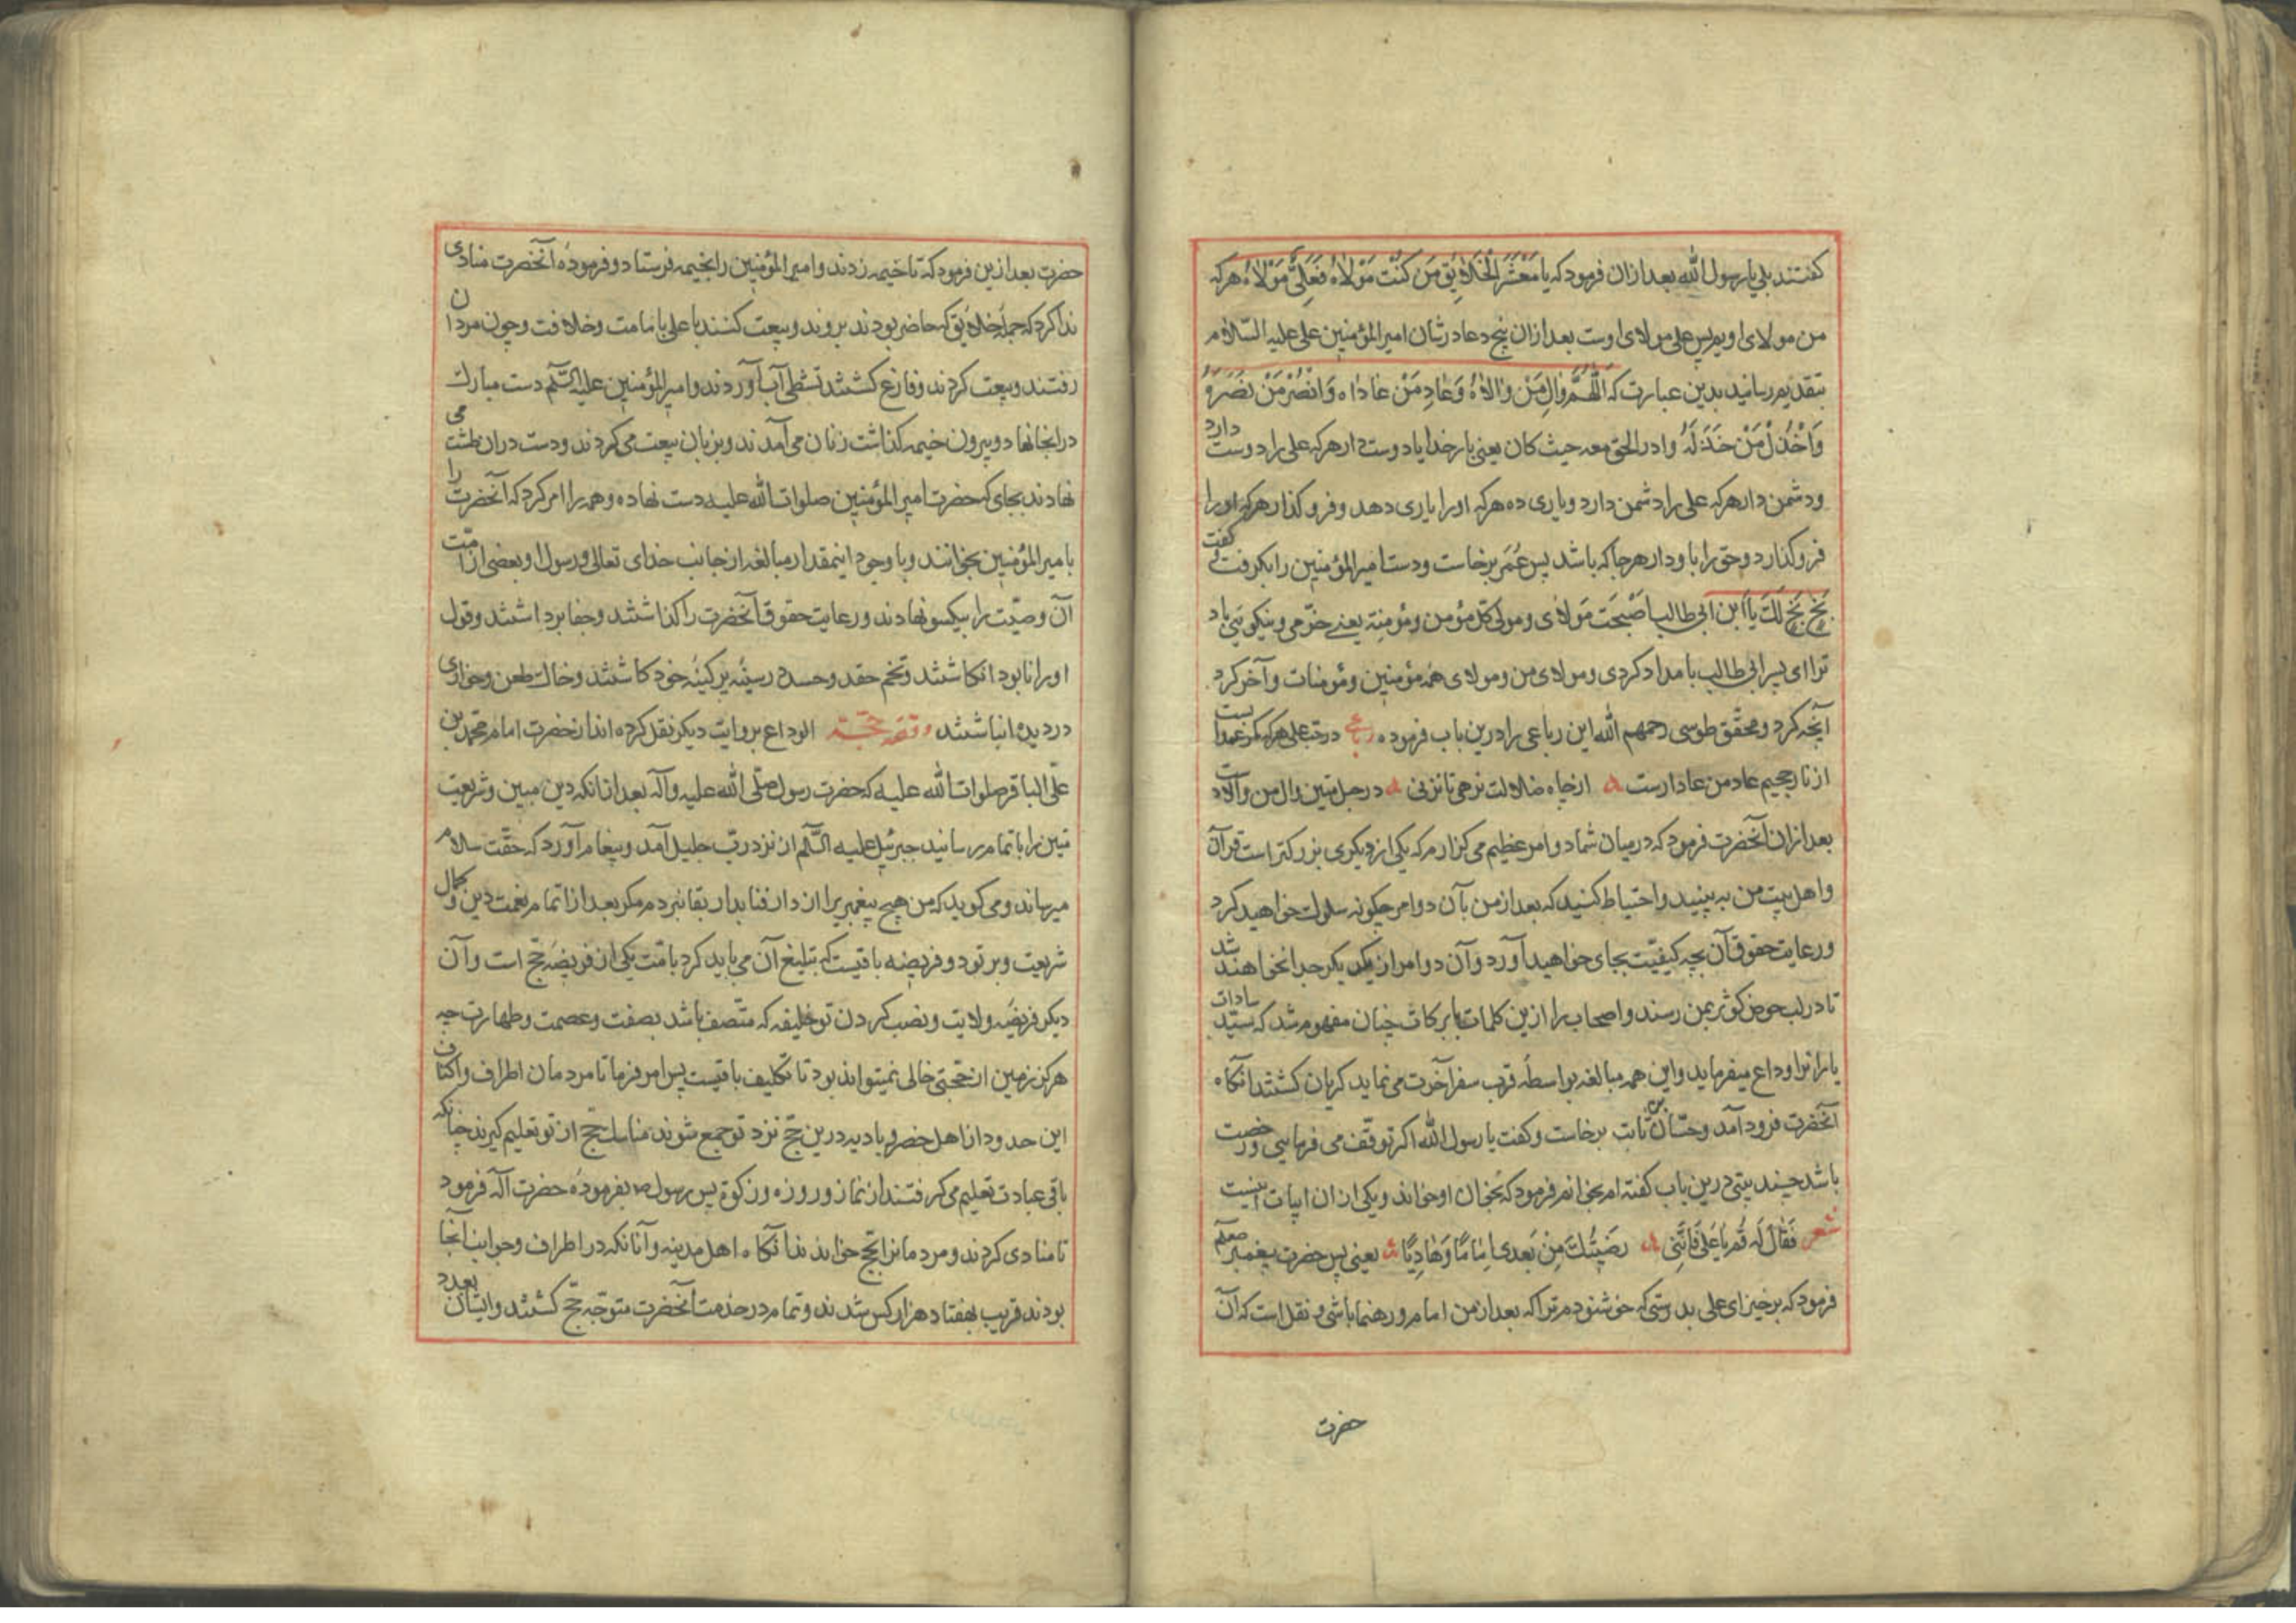 کفتند بلی یا رسول الله بعد ازان فرمود که یا مَعْشَرَ الْخَلَایِقِ مَن کُنْتُ مَوْلاهُ فَعَلِیٌّ مَوْلاهُ هرکه
من مولای اویم پس علی مولای اوست بعد ازان پنج دعا در شان امیرالمؤمنین علی علیه السّلام
بتقدیم رسانید بدین عبارت که اَللّٰهُمَّ والِ مَنْ والاهُ وَعَادِ مَنْ عَاداه وَانْصُرْ مَنْ نَصَرَهُ
وَاخْذُلْ مَنْ خَذَلَهُ وادر الحق معه حیث کان یعنی بار خدایا دوست دار هرکه علی را دوست دارد
ودشمن دار هرکه علی را دشمن دارد ویاری ده هرکه اورا یاری دهد وفرو کذار هرکه اورا
فرو کذارد وحق را با ودار هرجا که باشد پس عُمَر برخاست ودست امیرالمؤمنین را بکرفت وکفت
بَخٍ بَخٍ لَكَ یا اَبن ابی طالب اَصْبَحَت مَولای ومولی کلّ مؤمن ومؤمنة یعنے خرّمی ونیکویی باد
ترا ای پسر ابی طالب بامداد کردی ومولای من ومولای همه مؤمنین ومؤمنات وآخر کرد
آنچه کرد ومحقّق طوسی رحمهم الله این رباعی را درین باب فرموده رباعی در حبّ علی هرکه
از نار جحیم عاد من عادارست ازچاه ضلالت نرهی تا نزنی در حبل متین وال من والاه دست
بعد ازان آنحضرت فرمود که درمیان شما دو امر عظیم می کذارم که یکی از دیکری بزرکتر است قرآن
واهل بیت من به بینید واحتیاط کنید که بعد از من بآن دو امر چکونه سلوك خواهید کرد
ورعایت حقوق آن بچه کیفیّت بجای خواهید آورد وآن دو امر از یکدیکر جدا نخواهند شد
تا در لب حوض کوثر بمن رسند واصحاب را ازین کلمات بابرکات چنان مفهوم شد که سیّد سادات
یارانرا وداع میفرماید واین همه مبالغه بواسطهٔ قرب سفر آخرت می نماید کریان کشتند آنکاه
آنحضرت فرود آمد وحسّان بن ثابت برخاست وکفت یا رسول الله اکر توقّف می فرمایی ورخصت
باشد چند بیتی درین باب کفته ام بخوانم فرمود که بخوان او خواند ویکی ازان ابیات اینست
شعر فَقَالَ لَه قُم یَا عَلی فَاِنَّنِی رَضَیتُكَ مِنْ بَعدی اِمَامًا وَهَادِیًا یعنی پس حضرت پیغمبر صلعم
فرمود که برخیز ای علی بدرستی که خوشنودم ترا که بعد از من امام ورهنما باشی ونقل است که آن
حضرت
حضرت بعد ازین فرمود که تا خیمه زدند وامیرالمؤمنین را بخیمه فرستاد وفرمودهٔ آنحضرت منادی
ندا کرد که جمله خلایق که حاضر بودند بروند وبیعت کنند با علی بامامت وخلافت وچون مردان
رفتند وبیعت کردند وفارغ کشتند تشطی آب آوردند وامیرالمؤمنین علیه السّلم دست مبارك
در انجا نهاد وبیرون خیمه کذاشت زنان می آمدند وبزبان بیعت می کردند ودست دران طشت می
نهادند بجای که حضرت امیرالمؤمنین صلوات الله علیه دست نهاده وهمه را امر کرد که آنحضرت را
بامیرالمؤمنین بخوانند وبا وجود اینمقدار مبالغه از جانب خدای تعالی ورسول او بعضی از امّت
آن وصیّت را بیکسو نهادند ورعایت حقوق آنحضرت را کذاشتند وجفا برداشتند وقول
اورا نابود انکاشتند وتخم حقد وحسد در سینهٔ پرکینهٔ خود کاشتند وخاك طعن وخواری
در دیده انباشتند وقصّه حجّة الوداع بروایت دیکر نقل کرده اند از حضرت امام محمّد بن
علی الباقر صلوات الله علیه که حضرت رسول صلّی الله علیه وآله بعد ازانکه دین مبین وشریعت
متین را باتمام رسانید جبرئیل علیه السّلم از نزد ربّ جلیل آمد وپیغام آورد که حقّت سلام
میرساند ومی کوید که من هیچ پیغمبریرا از دار فنا بدار بقا نبردم مکر بعد از اتمام نعمت دین وکمال
شریعت وبر تو دو فریضه باقیست که تبلیغ آن می باید کرد بامّت یکی ازان فریضهٔ حجّ است وآن
دیکر فریضهٔ ولایت ونصب کردن تو خلیفه که متّصف باشد بصفت وعصمت وطهارت چه
هرکز زمین از حجّتی خالی نمیتواند بود تا تکلیف باقیست پس امر فرما تا مردمان اطراف واکناف
این حدود از اهل حضر وبادیه درین حجّ نزد تو جمع شوند مناسك حجّ از تو تعلیم کیرند چنانکه
باقی عبادت تعلیم می کرفتند از نماز وروزه وزکوة پس رسول ص بفرمودهٔ حضرت اله فرمود
تا منادی کردند ومردمانرا بحج خواندند آنکاه اهل مدینه وآنانکه در اطراف وجوانب آنجا
بودند قریب بهفتاد هزار کس شدند وتمام در خدمت آنحضرت متوجّه حجّ کشتند وایشان بعدد